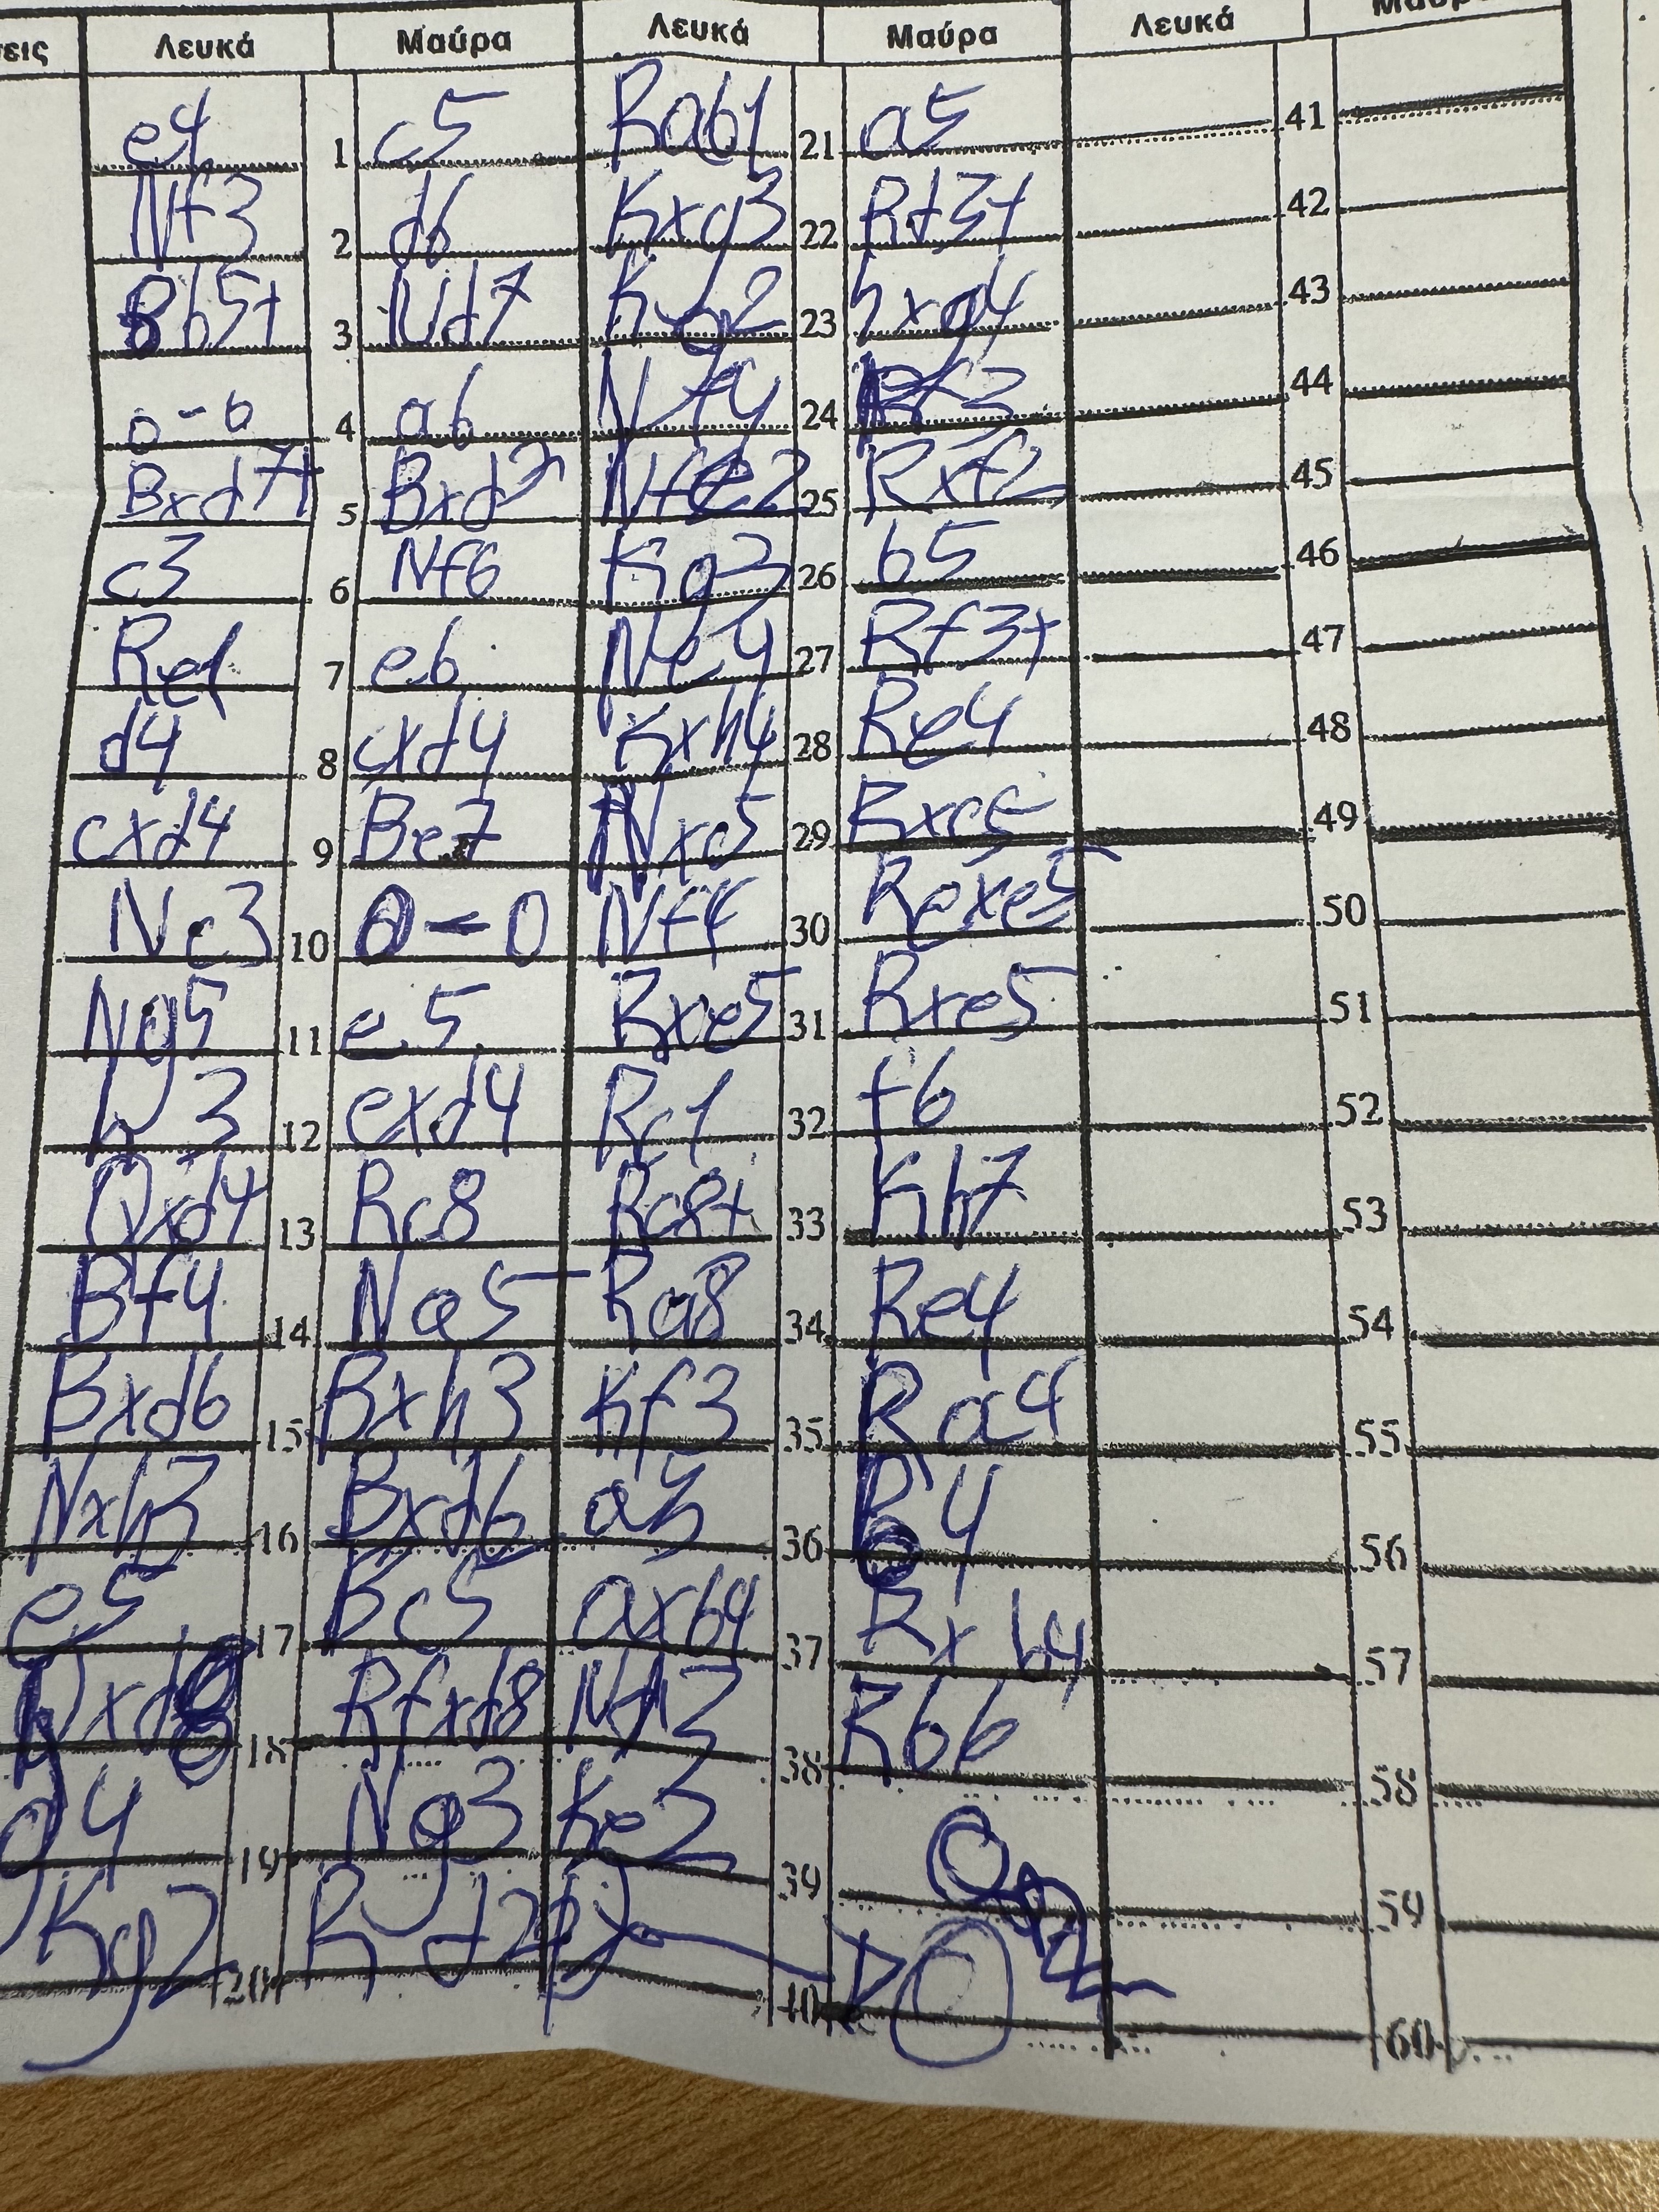 σεις Λευκά Μαύρα Λευκά Μαύρα Λευκά Μαύρα
e4 1 c5 Rab1 21 a5 41
Nf3 2 d6 Kxg3 22 Rd3+ 42
Bb5+ 3 Nd7 Kg2 23 hxg4 43
0-0 4 a6 Nf4 24 Rf3 44
Bxd7+ 5 Bxd7 Nfe2 25 Rxf2 45
c3 6 Nf6 Kg3 26 b5 46
Re1 7 e6 Ne4 27 Rf3+ 47
d4 8 cxd4 Kxh4 28 Rxe4 48
cxd4 9 Be7 Nxc5 29 Rxc5 49
Nc3 10 0-0 Nf4 30 Rexe5 50
Ng5 11 e5 Rxe5 31 Rxe5 51
h3 12 exd4 Rc1 32 f6 52
Qxd4 13 Rc8 Rc8+ 33 Kh7 53
Bf4 14 Na5 Ra8 34 Re4 54
Bxd6 15 Bxh3 Kf3 35 Ra4 55
Nxh3 16 Bxd6 a3 36 B4 56
e5 17 Bc5 axb4 37 Rxb4 57
Qxd8 18 Rfxd8 Nd3 38 Rb6 58
g4 19 Ng3 Ke2 39 59
Kg2 20 Rd2 40 60